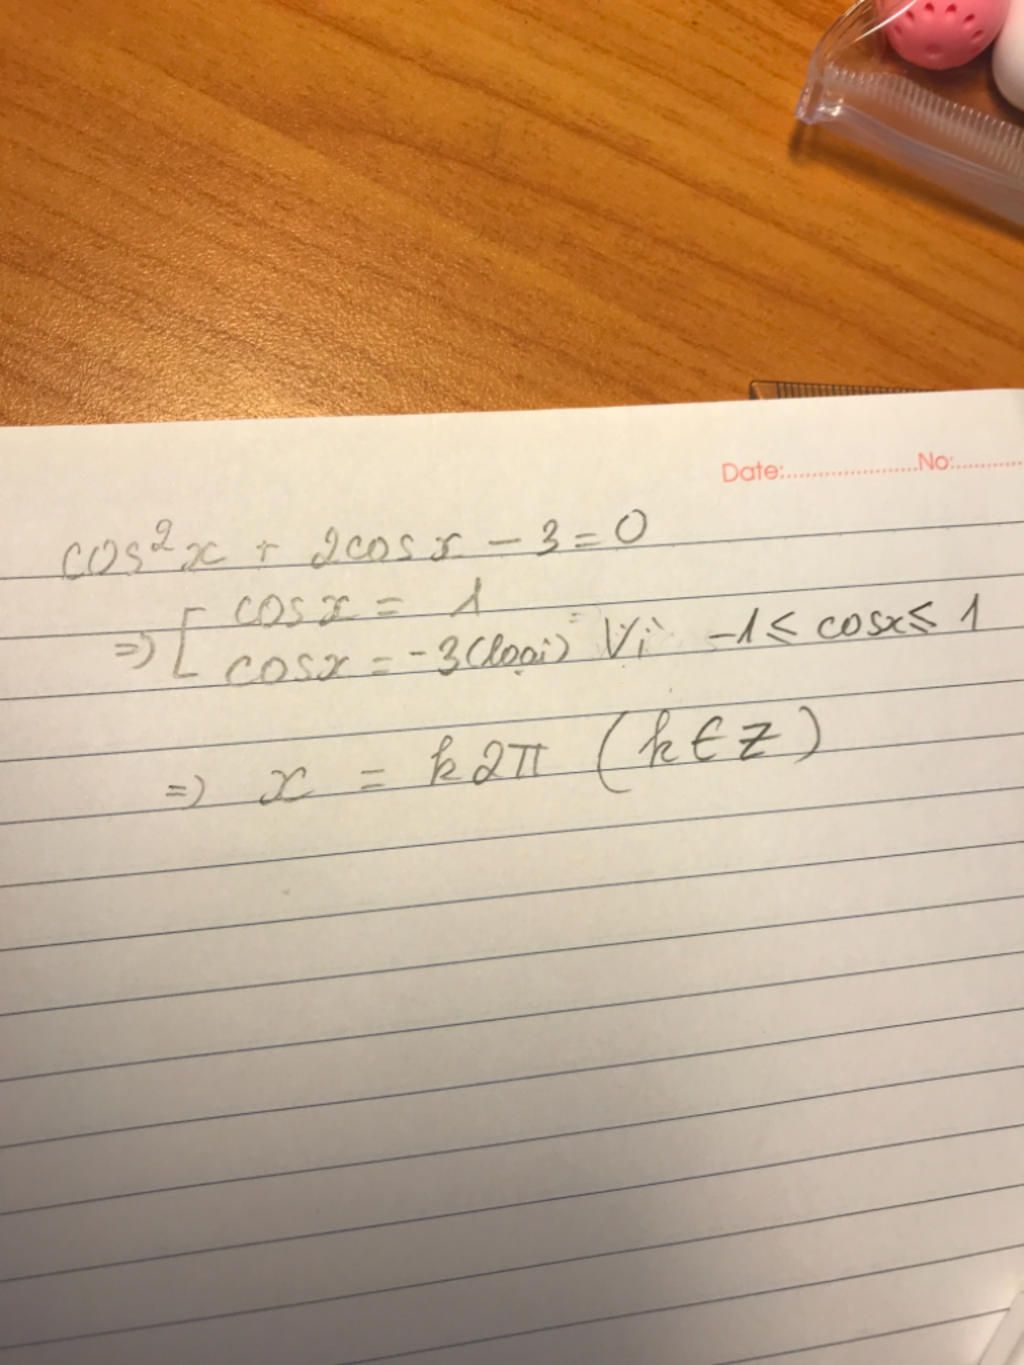 Date:......................No:............
cos²x + 2cosx - 3 = 0
=> [ cosx = 1
cosx = -3 (loại) Vì -1 ≤ cosx ≤ 1
=> x = k2π (k ∈ Z)